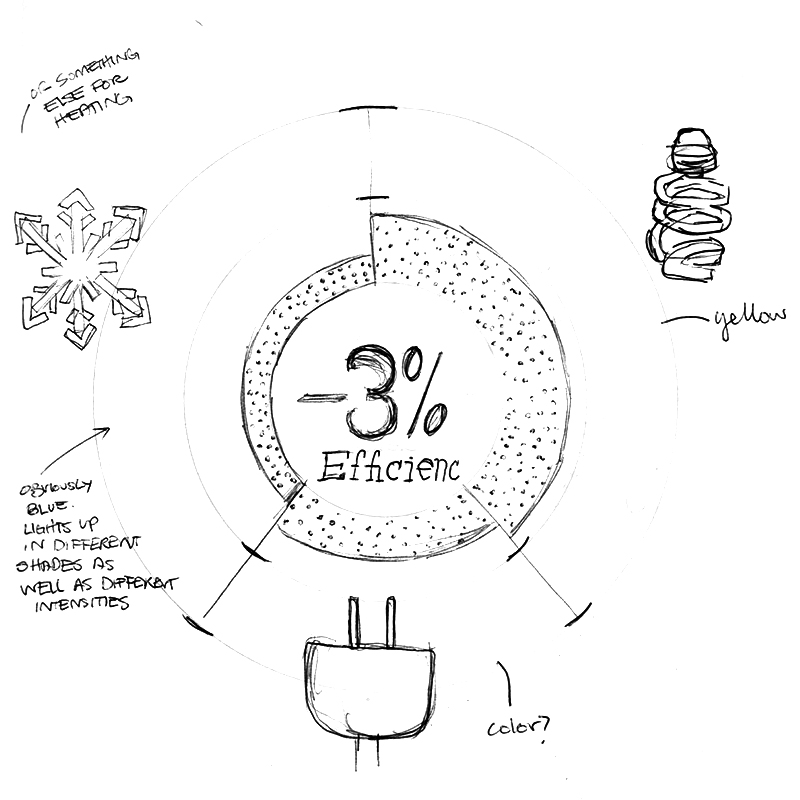 OR SOMETHING
ELSE FOR
HEATING
yellow
-3%
Efficienc
OBVIOUSLY
BLUE.
LIGHTS UP
IN DIFFERENT
SHADES AS
WELL AS DIFFERENT
INTENSITIES
color?